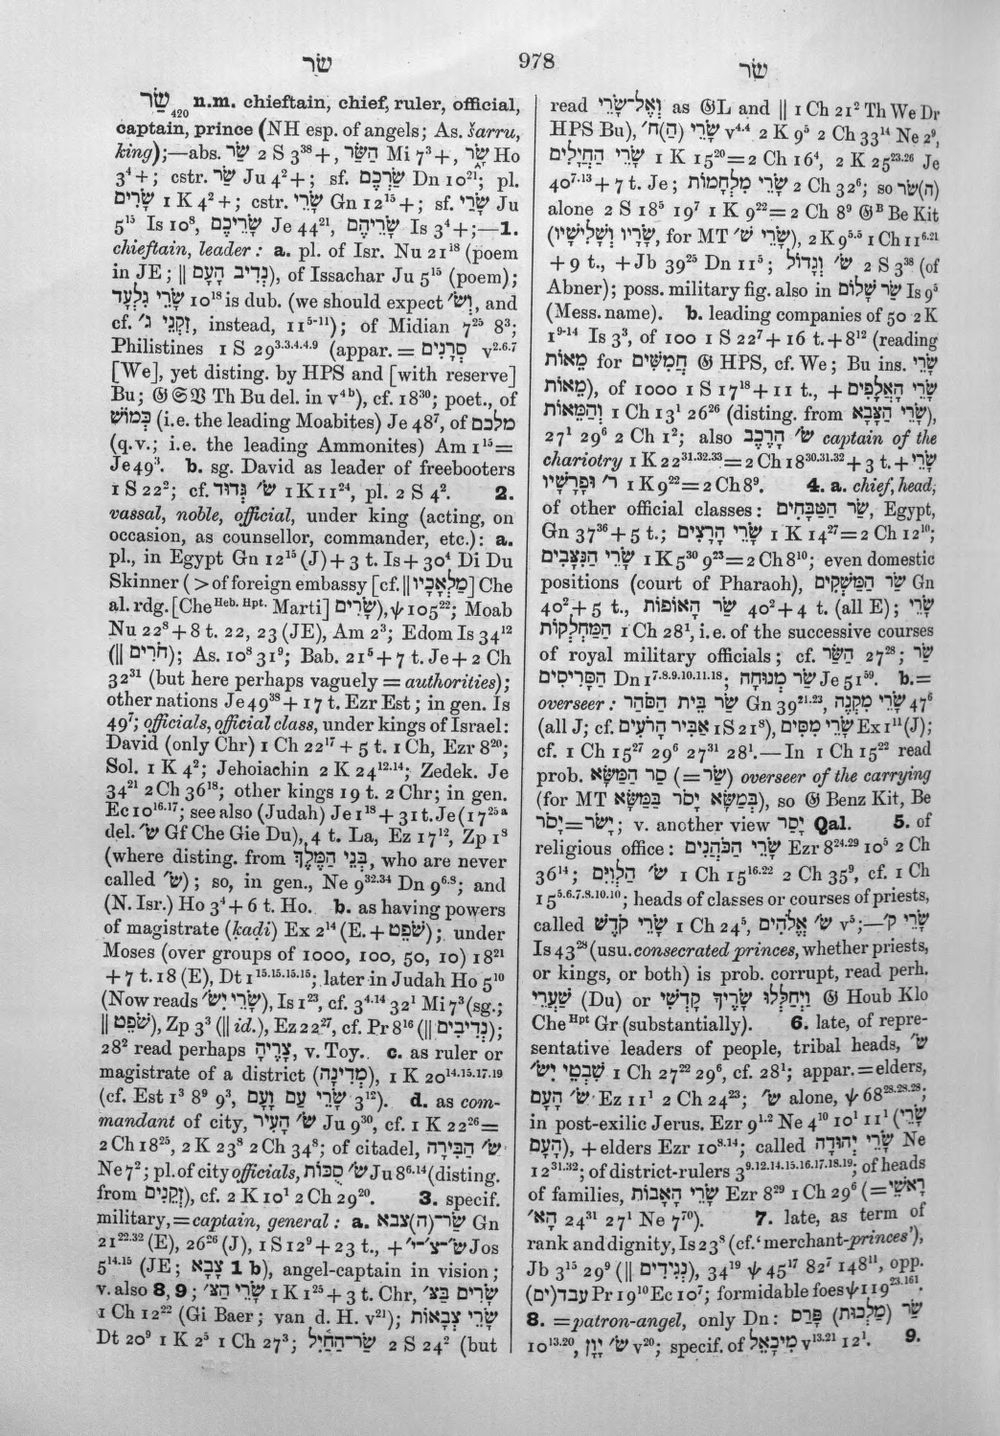 שׂר
978
שׂר
שַׂר 420 n.m. chieftain, chief, ruler, official,
captain, prince (NH esp. of angels; As. šarru,
king);—abs. שַׂר 2 S 3³⁸+, הַשַּׂר Mi 7³+, שָׂר Ho
3⁴+; cstr. שַׂר Ju 4²+; sf. שַׂרְכֶם Dn 10²¹; pl.
שָׂרִים 1 K 4²+; cstr. שָׂרֵי Gn 12¹⁵+; sf. שָׂרַי Ju
5¹⁵ Is 10⁸, שָׂרֵיכֶם Je 44²¹, שָׂרֵיהֶם Is 3⁴+;—1.
chieftain, leader: a. pl. of Isr. Nu 21¹⁸ (poem
in JE; ‖ נְדִיב הָעָם), of Issachar Ju 5¹⁵ (poem);
שָׂרֵי גִלְעָד 10¹⁸ is dub. (we should expect וְשׂ׳, and
cf. זִקְנֵי ג׳, instead, 11⁵⁻¹¹); of Midian 7²⁵ 8³;
Philistines 1 S 29³·³·⁴·⁴·⁹ (appar. = סְרָנִים v²·⁶·⁷
[We], yet disting. by HPS and [with reserve]
Bu; 𝔊 𝔖 𝔙 Th Bu del. in v⁴ᵇ), cf. 18³⁰; poet., of
כְּמוֹשׁ (i.e. the leading Moabites) Je 48⁷, of מלכם
(q.v.; i.e. the leading Ammonites) Am 1¹⁵=
Je 49³. b. sg. David as leader of freebooters
1 S 22²; cf. שׂ׳ גְּדוּד 1 K 11²⁴, pl. 2 S 4². 2.
vassal, noble, official, under king (acting, on
occasion, as counsellor, commander, etc.): a.
pl., in Egypt Gn 12¹⁵ (J) + 3 t. Is + 30⁴ Di Du
Skinner (> of foreign embassy [cf. ‖ מַלְאָכָיו] Che
al. rdg. [Che Heb. Hpt. Marti] שָׂרִים), ψ 105²²; Moab
Nu 22⁸ + 8 t. 22, 23 (JE), Am 2³; Edom Is 34¹²
(‖ חֹרִים); As. 10⁸ 31⁹; Bab. 21⁵ + 7 t. Je + 2 Ch
32³¹ (but here perhaps vaguely = authorities);
other nations Je 49³⁸ + 17 t. Ezr Est; in gen. Is
49⁷; officials, official class, under kings of Israel:
David (only Chr) 1 Ch 22¹⁷ + 5 t. 1 Ch, Ezr 8²⁰;
Sol. 1 K 4²; Jehoiachin 2 K 24¹²·¹⁴; Zedek. Je
34²¹ 2 Ch 36¹⁸; other kings 19 t. 2 Chr; in gen.
Ec 10¹⁶·¹⁷; see also (Judah) Je 1¹⁸ + 31 t. Je (17²⁵ᵃ
del. שׂ׳ Gf Che Gie Du), 4 t. La, Ez 17¹², Zp 1⁸
(where disting. from בְּנֵי הַמֶּלֶךְ, who are never
called שׂ׳); so, in gen., Ne 9³²·³⁴ Dn 9⁶·⁸; and
(N. Isr.) Ho 3⁴ + 6 t. Ho. b. as having powers
of magistrate (ḳaḍi) Ex 2¹⁴ (E. + שֹׁפֵט); under
Moses (over groups of 1000, 100, 50, 10) 18²¹
+ 7 t. 18 (E), Dt 1¹⁵·¹⁵·¹⁵·¹⁵; later in Judah Ho 5¹⁰
(Now reads שָׂרֵי יִשׂ׳), Is 1²³, cf. 3⁴·¹⁴ 32¹ Mi 7³ (sg.;
‖ שֹׁפֵט), Zp 3³ (‖ id.), Ez 22²⁷, cf. Pr 8¹⁶ (‖ נְדִיבִים);
28² read perhaps צָרֶיהָ, v. Toy. c. as ruler or
magistrate of a district (מְדִינָה), 1 K 20¹⁴·¹⁵·¹⁷·¹⁹
(cf. Est 1³ 8⁹ 9³, שָׂרֵי עַם וָעָם 3¹²). d. as com-
mandant of city, שׂ׳ הָעִיר Ju 9³⁰, cf. 1 K 22²⁶=
2 Ch 18²⁵, 2 K 23⁸ 2 Ch 34⁸; of citadel, שׂ׳ הַבִּירָה
Ne 7²; pl. of city officials, שׂ׳ סֻכּוֹת Ju 8⁶·¹⁴ (disting.
from זְקֵנִים), cf. 2 K 10¹ 2 Ch 29²⁰. 3. specif.
military, = captain, general: a. שַׂר־(ה)צבא Gn
21²²·³² (E), 26²⁶ (J), 1 S 12⁹ + 23 t., + שׂ׳־צ׳־י׳ Jos
5¹⁴·¹⁵ (JE; צָבָא 1 b), angel-captain in vision;
v. also 8, 9; שָׂרֵי הַצּ׳ 1 K 1²⁵ + 3 t. Chr, שָׂרִים בַּצּ׳
1 Ch 12²² (Gi Baer; van d. H. v²¹); שָׂרֵי צְבָאוֹת
Dt 20⁹ 1 K 2⁵ 1 Ch 27³; שַׂר־הַחַיִל 2 S 24² (but
read וְאֶל־שָׂרֵי as 𝔊L and ‖ 1 Ch 21² Th We Dr
HPS Bu), שָׂרֵי (הַ)ח׳ v⁴·⁴ 2 K 9⁵ 2 Ch 33¹⁴ Ne 2⁹,
שָׂרֵי הַחֲיָלִים 1 K 15²⁰=2 Ch 16⁴, 2 K 25²³·²⁶ Je
40⁷·¹³ + 7 t. Je; שָׂרֵי מִלְחָמוֹת 2 Ch 32⁶; so (ה)שׂר
alone 2 S 18⁵ 19⁷ 1 K 9²²=2 Ch 8⁹ 𝔊ᴮ Be Kit
(שָׂרָיו וְשָׁלִישָׁיו, for MT שָׂרֵי שׁ׳), 2 K 9⁵·⁵ 1 Ch 11⁶·²¹
+ 9 t., + Jb 39²⁵ Dn 11⁵; שׂ׳ וְגָדוֹל 2 S 3³⁸ (of
Abner); poss. military fig. also in שַׂר שָׁלוֹם Is 9⁵
(Mess. name). b. leading companies of 50 2 K
1⁹⁻¹⁴ Is 3³, of 100 1 S 22⁷ + 16 t. + 8¹² (reading
מֵאוֹת for חֲמִשִּׁים 𝔊 HPS, cf. We; Bu ins. שָׂרֵי
מֵאוֹת), of 1000 1 S 17¹⁸ + 11 t., + שָׂרֵי הָאֲלָפִים
וְהַמֵּאוֹת 1 Ch 13¹ 26²⁶ (disting. from שָׂרֵי הַצָּבָא),
27¹ 29⁶ 2 Ch 1²; also שׂ׳ הָרֶכֶב captain of the
chariotry 1 K 22³¹·³²·³³=2 Ch 18³⁰·³¹·³² + 3 t. + שָׂרֵי
ר׳ וּפָרָשָׁיו 1 K 9²²=2 Ch 8⁹. 4. a. chief, head,
of other official classes: שַׂר הַטַּבָּחִים, Egypt,
Gn 37³⁶ + 5 t.; שָׂרֵי הָרָצִים 1 K 14²⁷=2 Ch 12¹⁰;
שָׂרֵי הַנִּצָּבִים 1 K 5³⁰ 9²³=2 Ch 8¹⁰; even domestic
positions (court of Pharaoh), שַׂר הַמַּשְׁקִים Gn
40² + 5 t., שַׂר הָאוֹפוֹת 40² + 4 t. (all E); שָׂרֵי
הַמַּחְלְקוֹת 1 Ch 28¹, i.e. of the successive courses
of royal military officials; cf. הַשַּׂר 27²⁸; שַׂר
הַסָּרִיסִים Dn 1⁷·⁸·⁹·¹⁰·¹¹·¹⁸; שַׂר מְנוּחָה Je 51⁵⁹. b.=
overseer: שַׂר בֵּית הַסֹּהַר Gn 39²¹·²³, שָׂרֵי מִקְנֶה 47⁶
(all J; cf. אַבִּיר הָרֹעִים 1 S 21⁸), שָׂרֵי מִסִּים Ex 1¹¹ (J);
cf. 1 Ch 15²⁷ 29⁶ 27³¹ 28¹.—In 1 Ch 15²² read
prob. סַר הַמַּשָּׂא (=שׂר) overseer of the carrying
(for MT בְּמַשָּׂא יָסֹר בַּמַּשָּׂא), so 𝔊 Benz Kit, Be
יָשׂר=יָסֹר; v. another view יָסַר Qal. 5. of
religious office: שָׂרֵי הַכֹּהֲנִים Ezr 8²⁴·²⁹ 10⁵ 2 Ch
36¹⁴; שׂ׳ הַלְוִיִּם 1 Ch 15¹⁶·²² 2 Ch 35⁹, cf. 1 Ch
15⁵·⁶·⁷·⁸·¹⁰·¹⁰; heads of classes or courses of priests,
called שָׂרֵי קֹדֶשׁ 1 Ch 24⁵, שׂ׳ אֱלֹהִים v⁵;—שָׂרֵי ק׳
Is 43²⁸ (usu. consecrated princes, whether priests,
or kings, or both) is prob. corrupt, read perh.
שַׁעֲרֵי (Du) or וַיְחַלְּלוּ שָׂרֶיךָ קָדְשִׁי 𝔊 Houb Klo
Che Hpt Gr (substantially). 6. late, of repre-
sentative leaders of people, tribal heads, שׂ׳
שִׁבְטֵי יִשׂ׳ 1 Ch 27²² 29⁶, cf. 28¹; appar.=elders,
שׂ׳ הָעָם Ez 11¹ 2 Ch 24²³; שׂ׳ alone, ψ 68²⁸·²⁸·²⁸;
in post-exilic Jerus. Ezr 9¹·² Ne 4¹⁰ 10¹ 11¹ (שָׂרֵי
הָעָם), + elders Ezr 10⁸·¹⁴; called שָׂרֵי יְהוּדָה Ne
12³¹·³²; of district-rulers 3⁹·¹²·¹⁴·¹⁵·¹⁶·¹⁷·¹⁸·¹⁹; of heads
of families, שָׂרֵי הָאָבוֹת Ezr 8²⁹ 1 Ch 29⁶ (=רָאשֵׁי
הָא׳ 24³¹ 27¹ Ne 7⁷⁰). 7. late, as term of
rank and dignity, Is 23⁸ (cf. ‘merchant-princes’),
Jb 3¹⁵ 29⁹ (‖ נְגִידִים), 34¹⁹ ψ 45¹⁷ 82⁷ 148¹¹, opp.
עבד(ים) Pr 19¹⁰ Ec 10⁷; formidable foes ψ 119²³·¹⁶¹.
8. =patron-angel, only Dn: שַׂר (מַלְכוּת) פָּרַס
10¹³·²⁰, שׂ׳ יָוָן v²⁰; specif. of מִיכָאֵל v¹³·²¹ 12¹. 9.